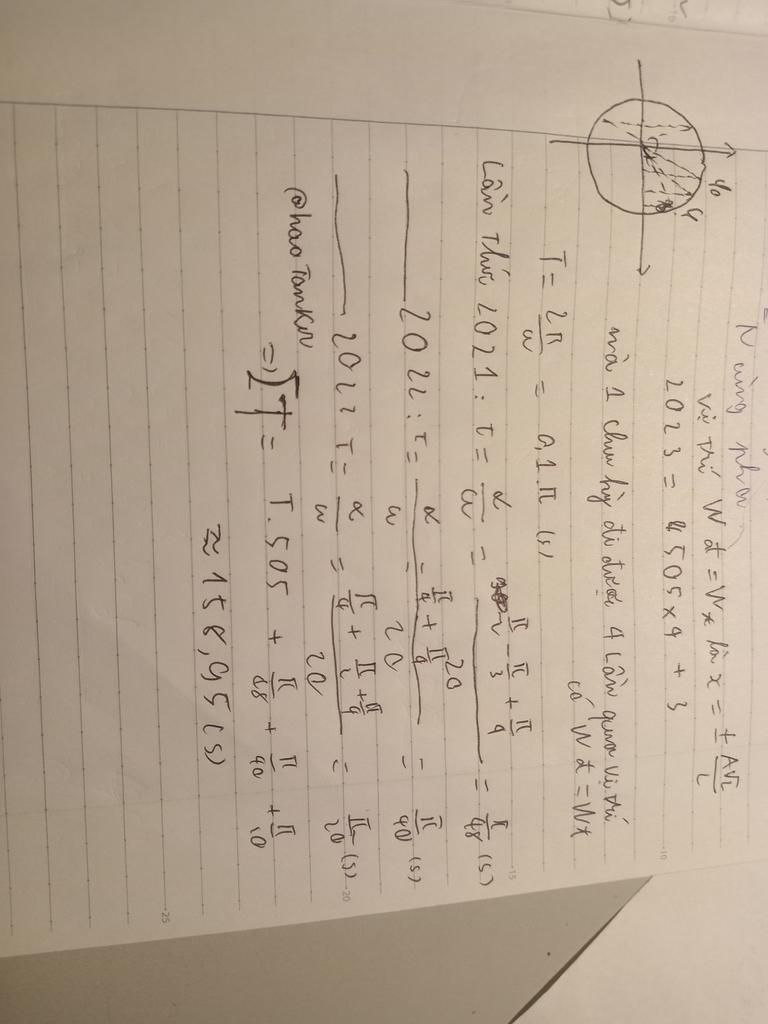 vị trí Wđ = Wt là x = ± A√2/2
2023 = 505 x 4 + 3
mà 1 chu kỳ đi được 4 lần qua vị trí
có Wđ = Wt
T = 2π/ω = 0,1.π (s)
Lần thứ 2021: t = α/ω = π/2 - π/3 + π/4 / 20 = π/48 (s)
2022: t = α/ω = π/4 + π/4 / 20 = π/40 (s)
2022 t = α/ω = π/4 + π/2 + π/4 / 20 = π/20 (s)
@haoTanKu
=> ∑T = T.505 + π/48 + π/40 + π/20
≈ 158,95 (s)